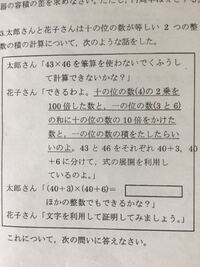 器の容積の差を求めなさい。ただし、円周率は
3.太郎さんと花子さんは十の位の数が等しい 2 つの整
数の積の計算について、次のような話をした。
太郎さん「43×46を筆算を使わないでくふうし
て計算できないかな？」
花子さん「できるわよ。十の位の数(4)の2乗を
100倍した数と、一の位の数(3と6)
の和に十の位の数の10倍をかけた
数と、一の位の数の積をたしたらい
いのよ。43と46をそれぞれ40+3、40
+6に分けて、式の展開を利用して
いるのよ。」
太郎さん「(40+3)×(40+6)=
ほかの整数でもできるかな？」
花子さん「文字を利用して証明してみましょう。」
これについて、次の問いに答えなさい。